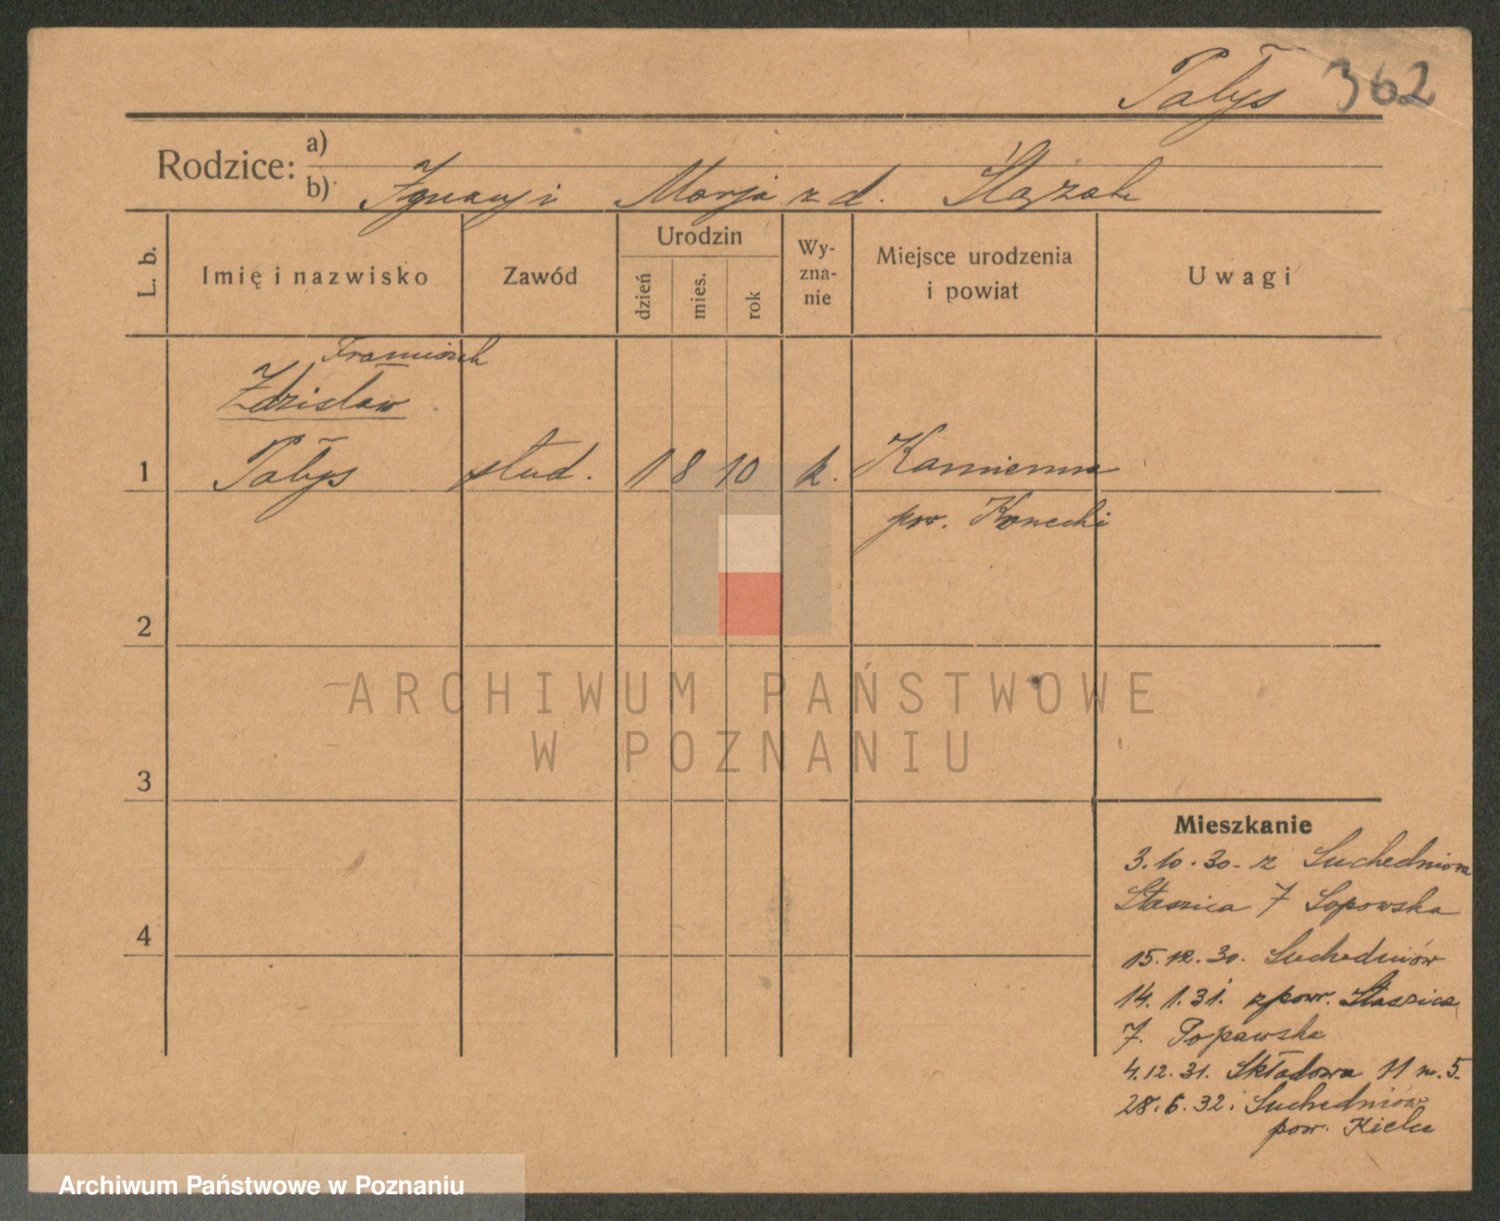 Pałys 362
Rodzice: a)
b) Ignacy i Marja z d. Ślązak
L. b.
Imię i nazwisko
Zawód
Urodzin
dzień
mies.
rok
Wy-
zna-
nie
Miejsce urodzenia
i powiat
Uwagi
Franciszek
Zdzisław
1 Pałys stud. 1 8 10 k. Kamienna
pow. Konecki
2
3
4
Mieszkanie
3.10.30 - z Suchedniowa
Staszica 7 Popowska
15.12.30. Suchedniów
14.1.31. z pow. Staszica
7. Popawska
4.12.31. Składowa 11 m. 5.
28.6.32. Suchedniów
pow. Kielce
ARCHIWUM PAŃSTWOWE
W POZNANIU
Archiwum Państwowe w Poznaniu